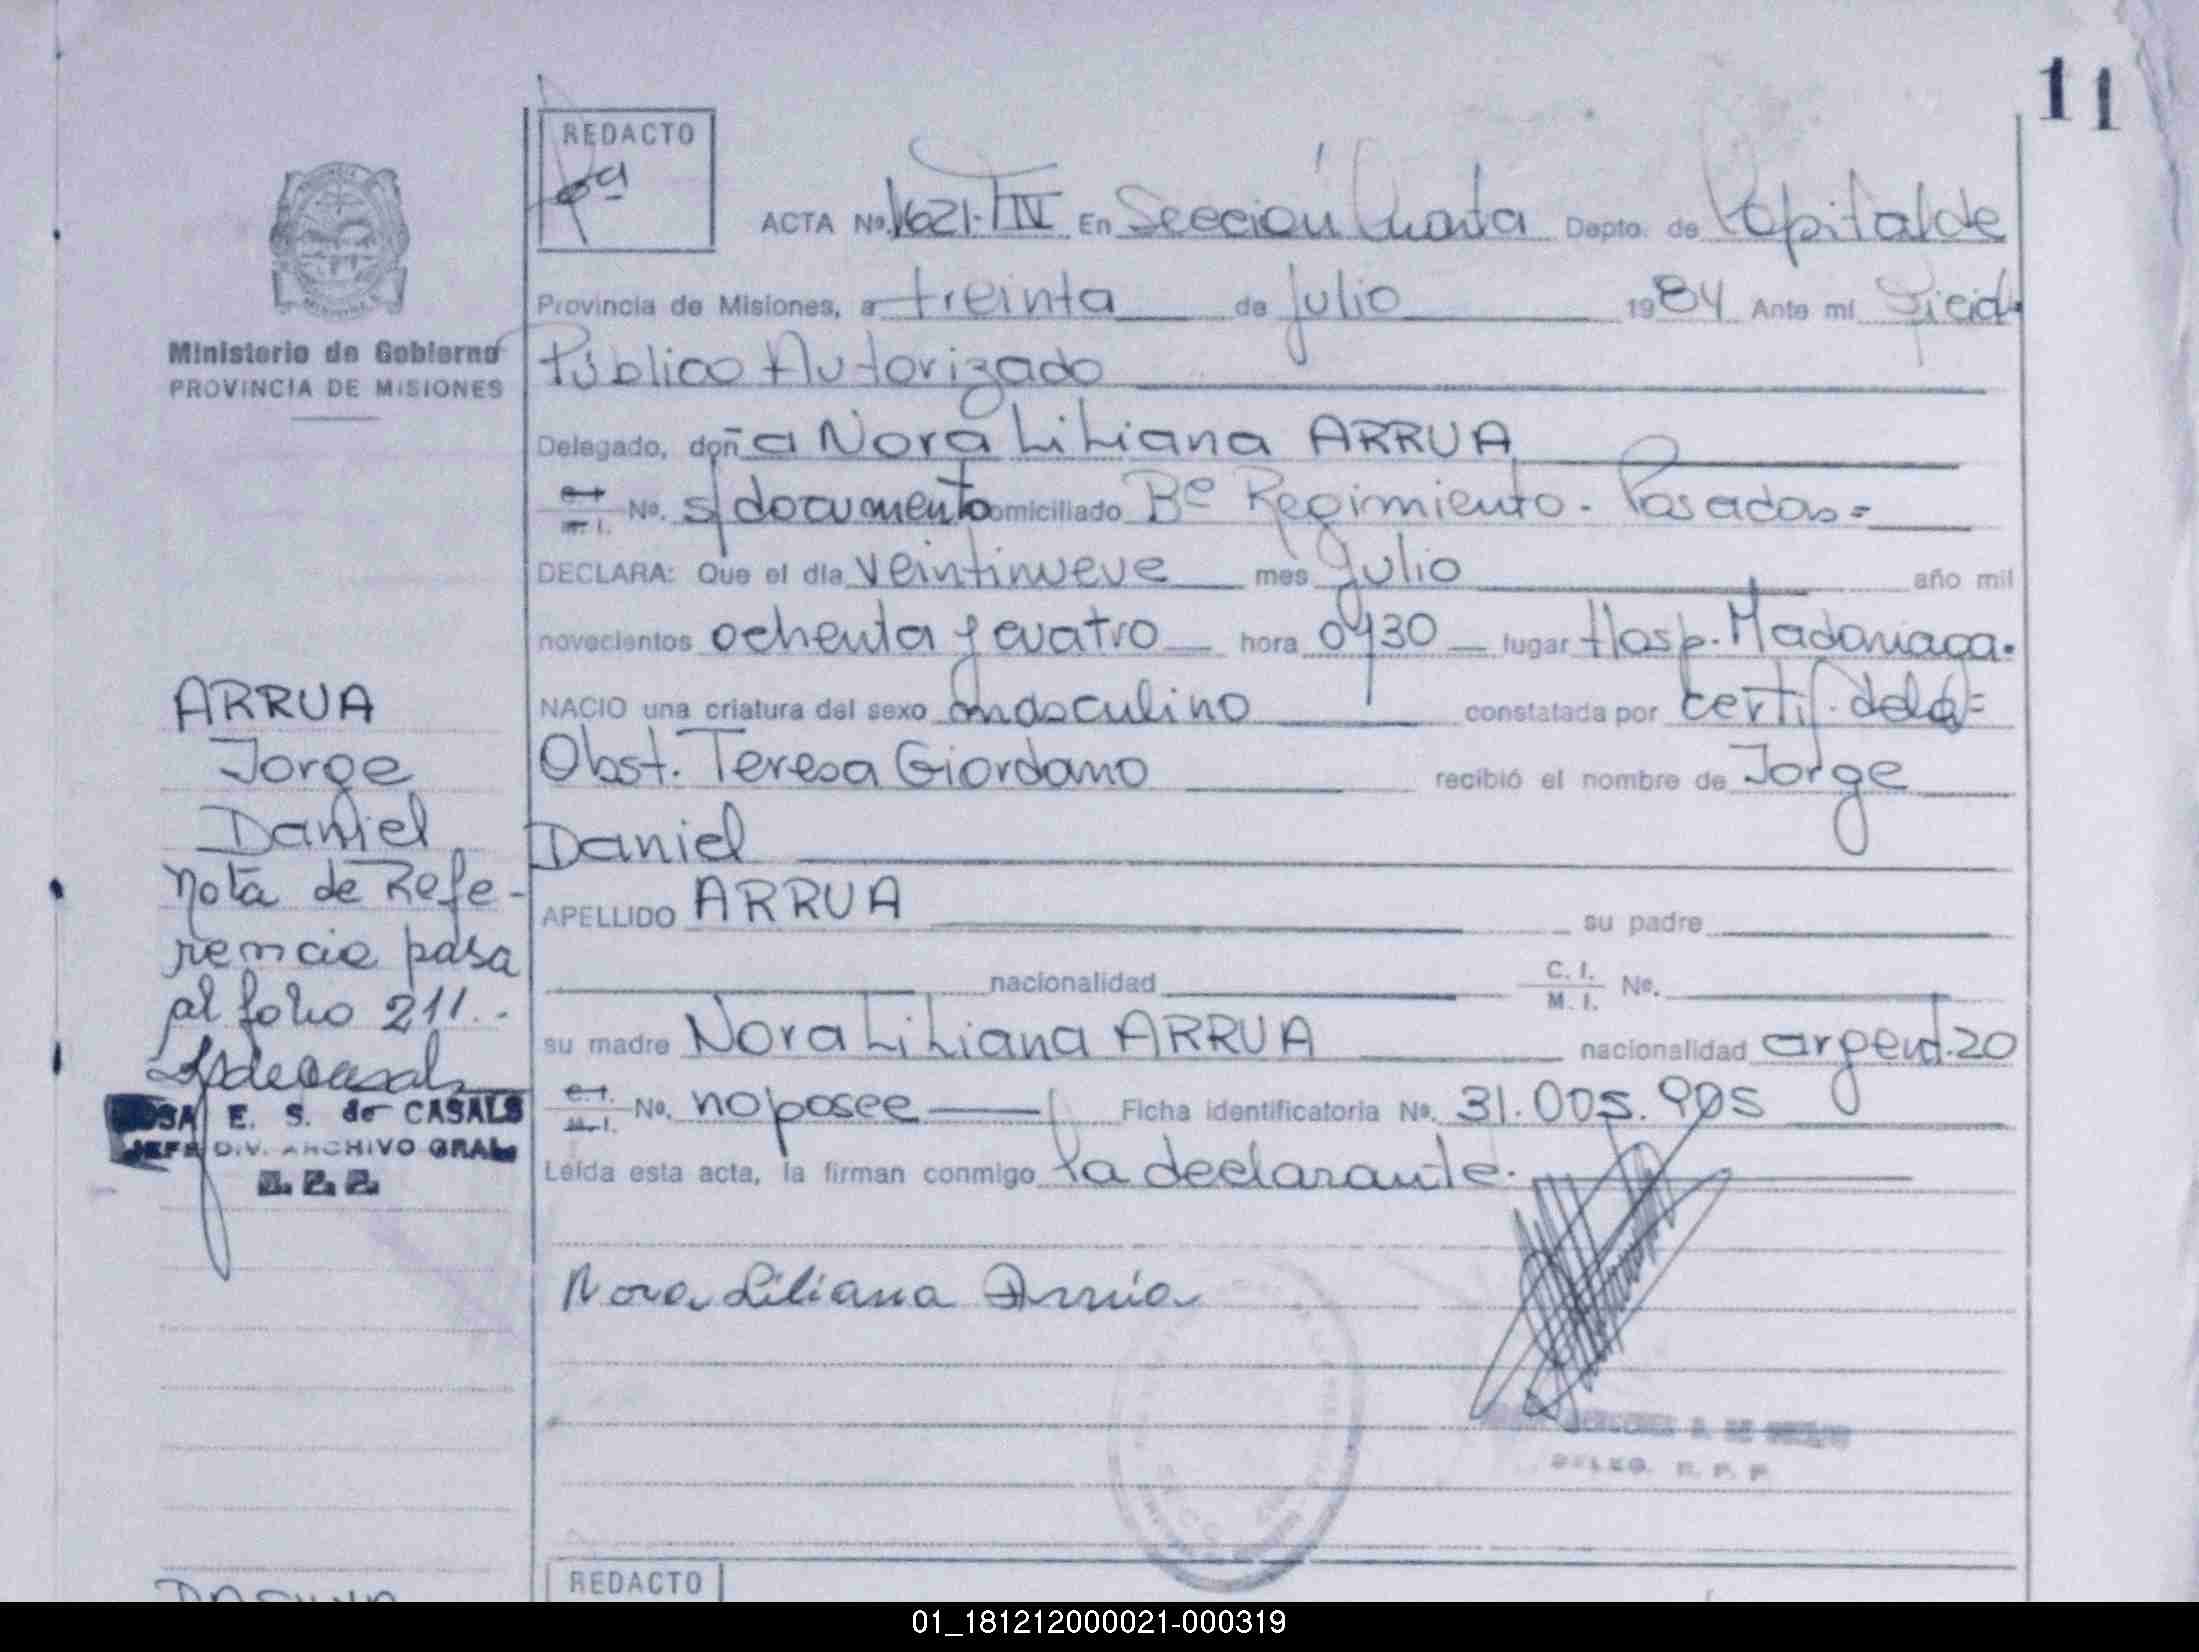 11
REDACTO
ACTA Nº 1621. T IV En Sección Cuarta Depto. de Capital de
Provincia de Misiones, a treinta de julio 1984 Ante mi
Público Autorizado
Ministerio de Gobierno
PROVINCIA DE MISIONES
Delegado, doña Nora Liliana ARRUA
Nº. s/documento domiciliado Bº Regimiento. Posadas=
DECLARA: Que el día veintinueve mes julio año mil
novecientos ochenta y cuatro hora 0730 lugar Hosp. Madariaga.
NACIO una criatura del sexo masculino constatada por certif. de la=
Obst. Teresa Giordano recibió el nombre de Jorge
Daniel
APELLIDO ARRUA su padre
nacionalidad C. I. M. I. Nº.
su madre Nora Liliana ARRUA nacionalidad argent. 20
Nº. no posee Ficha identificatoria Nº. 31.005.905
Leída esta acta, la firman conmigo la declarante.
Nora Liliana Arrúa
DELEG. R. P. P.
ARRUA
Jorge
Daniel
Nota de Refe-
rencia pasa
al folio 211..
ROSA E. S. de CASALS
JEFE DIV. ARCHIVO GRAL.
REDACTO
01_181212000021-000319